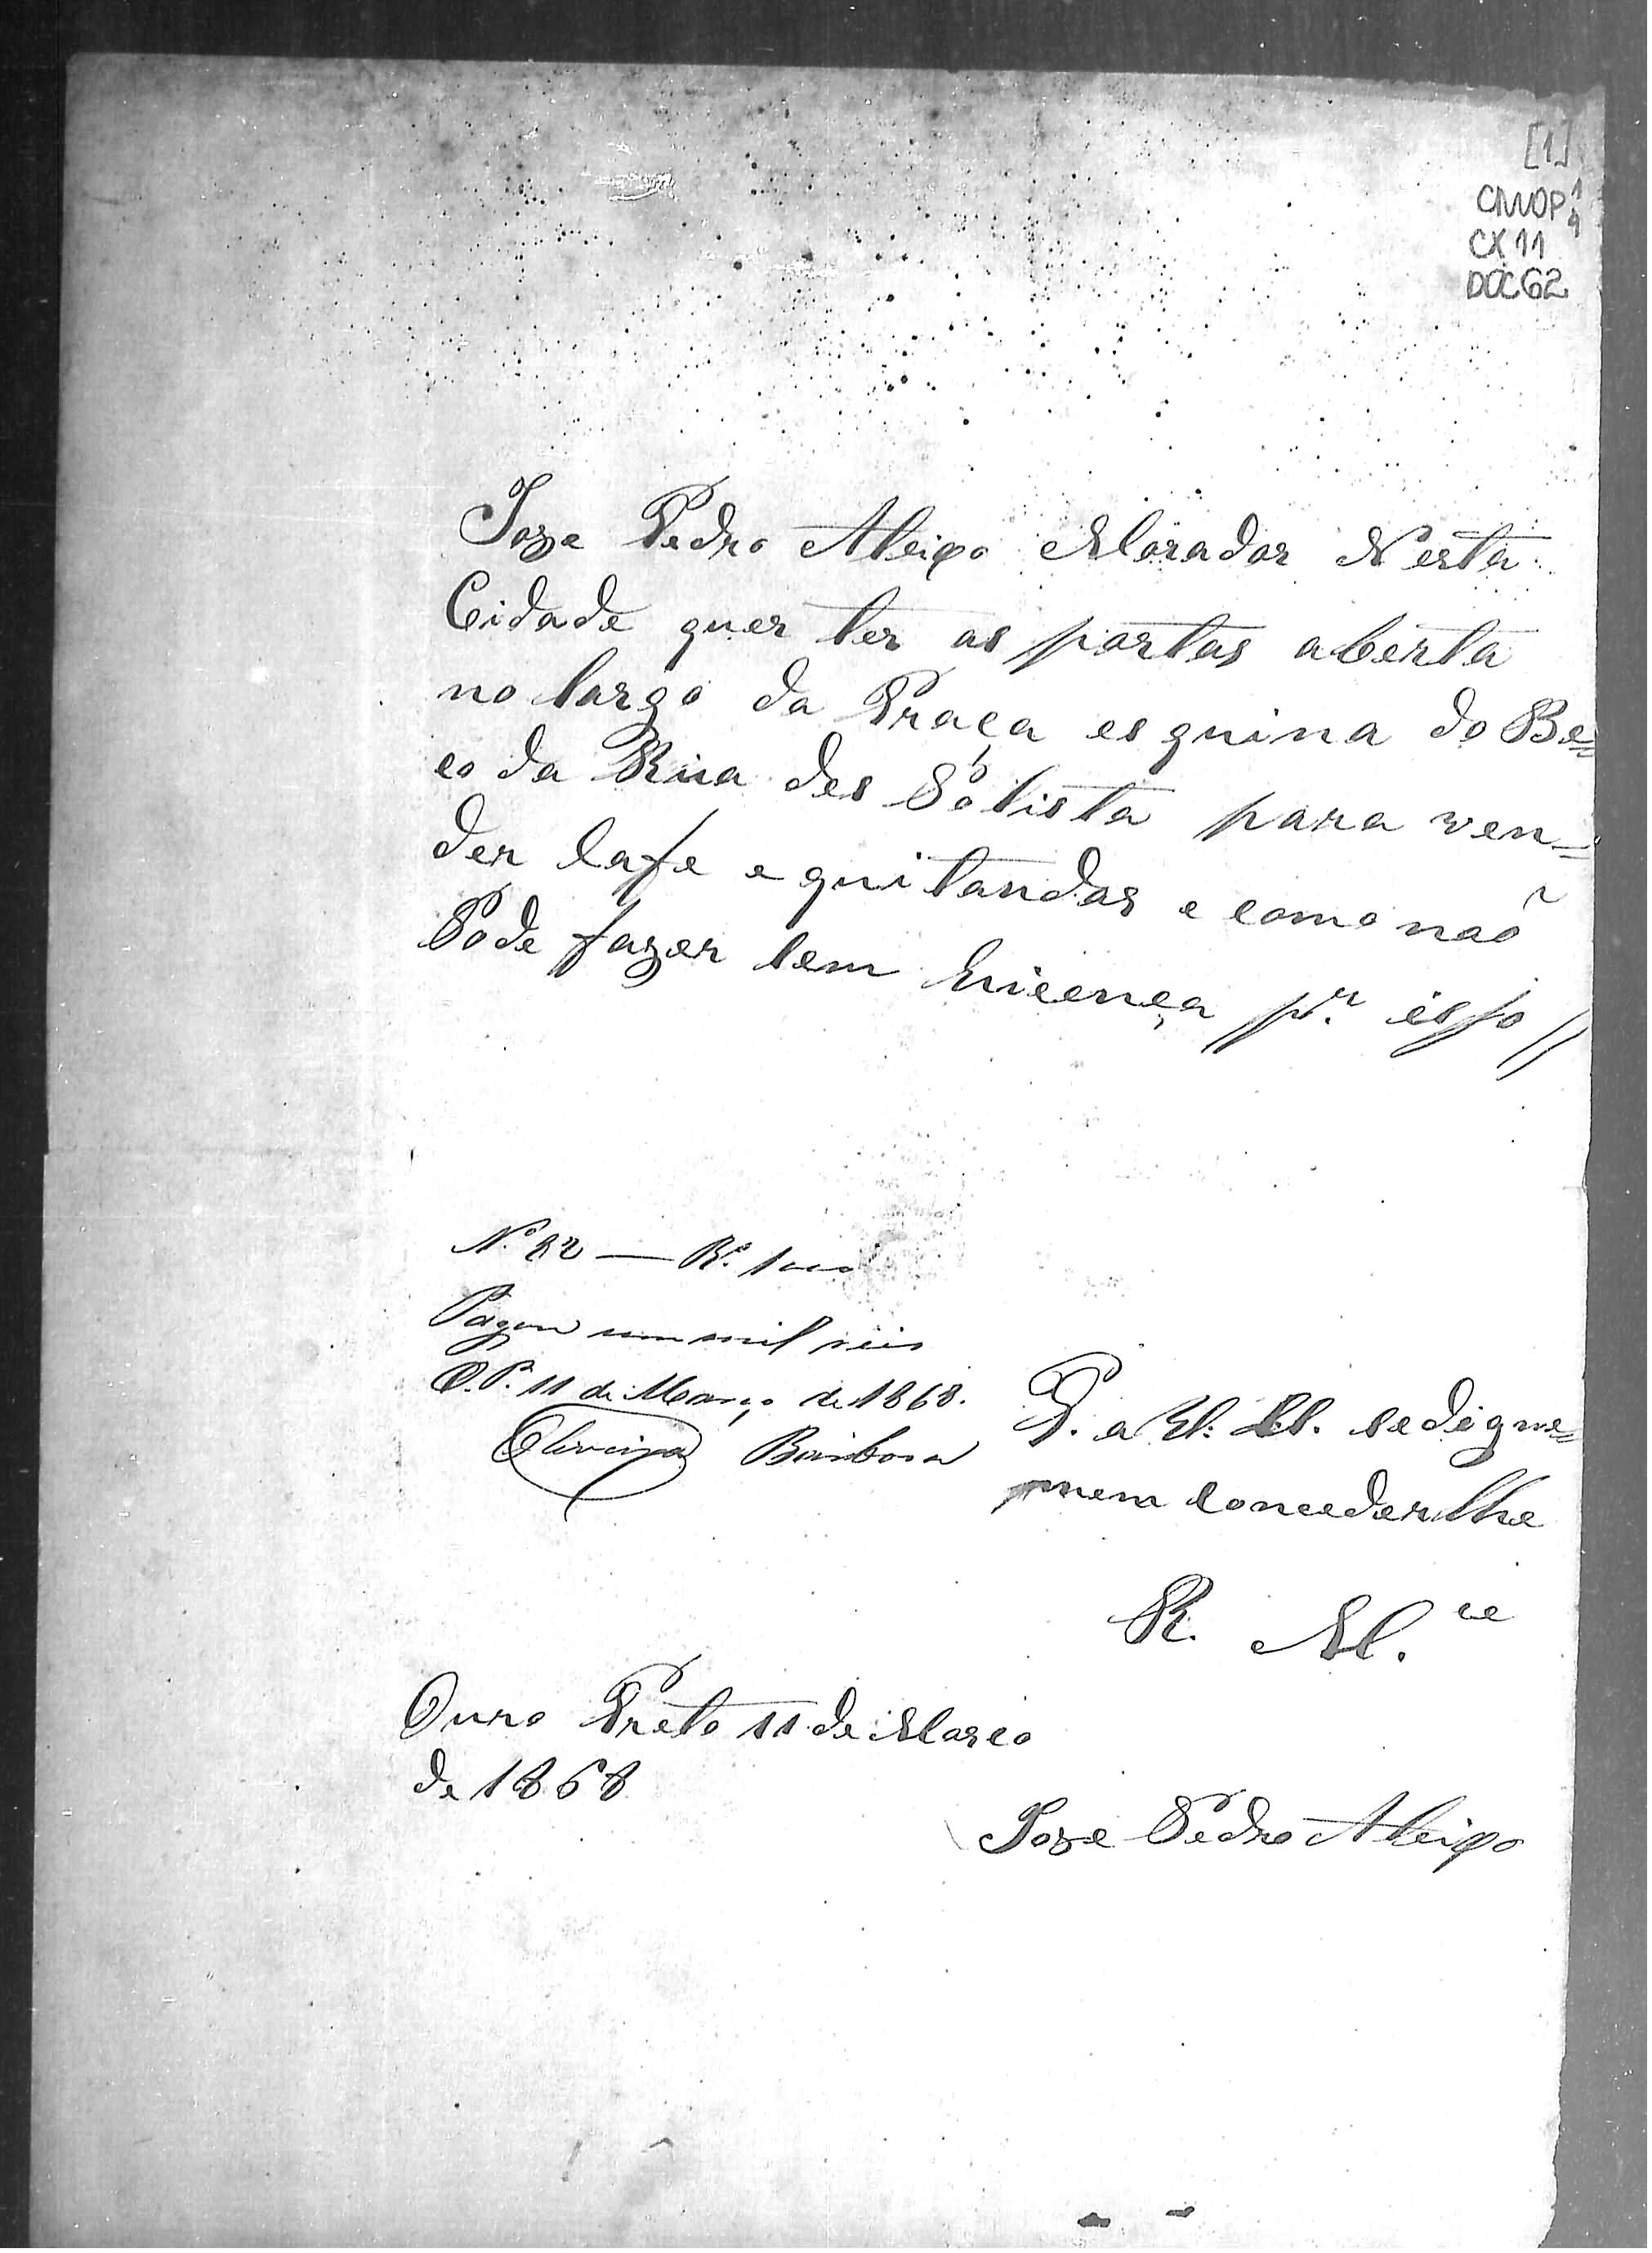 [1]
CMOP 1/4
CX 11
DOC 62
Joze Pedro Aleixo Morador Nesta
Cidade quer ter as portas aberta
no largo da Praça esquina do Be=
co da Rua des Potista para ven=
der Cafe e quitandas e como não
Pode fazer sem Licença pª isso //
Nº 82 — Rs. 1000
Pagou um mil reis
O.P. 11 de Março de 1868.
Oliveira Barbosa
P. a V. S. se digne=
mem Concederlhe
R. M.ce
Ouro Preto 11 de Marco
de 1868
Joze Pedro Aleixo